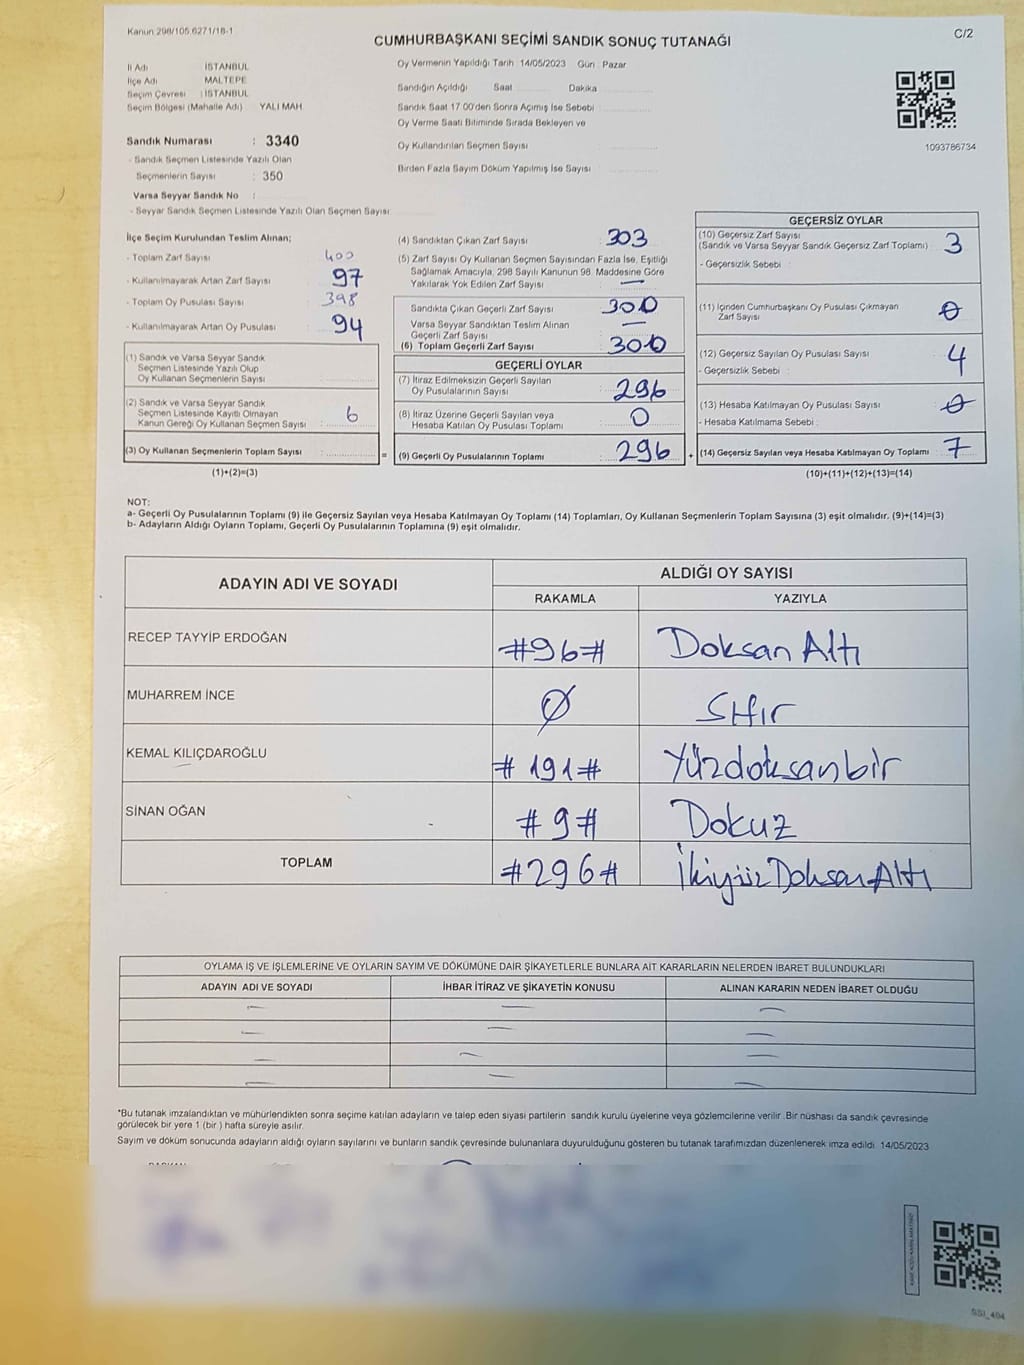 Kanun 298/105 6271/18-1
C/2
CUMHURBAŞKANI SEÇİMİ SANDIK SONUÇ TUTANAĞI
İl Adı : İSTANBUL
İlçe Adı : MALTEPE
Seçim Çevresi : İSTANBUL
Seçim Bölgesi (Mahalle Adı) : YALI MAH.
Sandık Numarası : 3340
- Sandık Seçmen Listesinde Yazılı Olan
Seçmenlerin Sayısı : 350
Varsa Seyyar Sandık No :
- Seyyar Sandık Seçmen Listesinde Yazılı Olan Seçmen Sayısı
Oy Vermenin Yapıldığı Tarih : 14/05/2023 Gün : Pazar
Sandığın Açıldığı Saat Dakika
Sandık Saat 17.00'den Sonra Açımış İse Sebebi :
Oy Verme Saati Bitiminde Sırada Bekleyen ve
Oy Kullandırılan Seçmen Sayısı
Birden Fazla Sayım Döküm Yapılmış İse Sayısı
1093786734
İlçe Seçim Kurulundan Teslim Alınan;
- Toplam Zarf Sayısı : 400
- Kullanılmayarak Artan Zarf Sayısı : 97
- Toplam Oy Pusulası Sayısı : 398
- Kullanılmayarak Artan Oy Pusulası : 94
(1) Sandık ve Varsa Seyyar Sandık
Seçmen Listesinde Yazılı Olup
Oy Kullanan Seçmenlerin Sayısı
(2) Sandık ve Varsa Seyyar Sandık
Seçmen Listesinde Kayıtlı Olmayan
Kanun Gereği Oy Kullanan Seçmen Sayısı : 6
(3) Oy Kullanan Seçmenlerin Toplam Sayısı :
(1)+(2)=(3)
(4) Sandıktan Çıkan Zarf Sayısı : 303
(5) Zarf Sayısı Oy Kullanan Seçmen Sayısından Fazla İse, Eşitliği
Sağlamak Amacıyla, 298 Sayılı Kanunun 98. Maddesine Göre
Yakılarak Yok Edilen Zarf Sayısı : —
Sandıkta Çıkan Geçerli Zarf Sayısı : 300
Varsa Seyyar Sandıktan Teslim Alınan
Geçerli Zarf Sayısı : —
(6) Toplam Geçerli Zarf Sayısı : 300
GEÇERLİ OYLAR
(7) İtiraz Edilmeksizin Geçerli Sayılan
Oy Pusulalarının Sayısı : 296
(8) İtiraz Üzerine Geçerli Sayılan veya
Hesaba Katılan Oy Pusulası Toplamı : 0
= (9) Geçerli Oy Pusulalarının Toplamı : 296
GEÇERSİZ OYLAR
(10) Geçersiz Zarf Sayısı
(Sandık ve Varsa Seyyar Sandık Geçersiz Zarf Toplamı) : 3
- Geçersizlik Sebebi :
(11) İçinden Cumhurbaşkanı Oy Pusulası Çıkmayan
Zarf Sayısı : 0
(12) Geçersiz Sayılan Oy Pusulası Sayısı : 4
- Geçersizlik Sebebi :
(13) Hesaba Katılmayan Oy Pusulası Sayısı : 0
- Hesaba Katılmama Sebebi :
+ (14) Geçersiz Sayılan veya Hesaba Katılmayan Oy Toplamı : 7
(10)+(11)+(12)+(13)=(14)
NOT:
a- Geçerli Oy Pusulalarının Toplamı (9) ile Geçersiz Sayılan veya Hesaba Katılmayan Oy Toplamı (14) Toplamları, Oy Kullanan Seçmenlerin Toplam Sayısına (3) eşit olmalıdır. (9)+(14)=(3)
b- Adayların Aldığı Oyların Toplamı, Geçerli Oy Pusulalarının Toplamına (9) eşit olmalıdır.
ADAYIN ADI VE SOYADI
ALDIĞI OY SAYISI
RAKAMLA YAZIYLA
RECEP TAYYİP ERDOĞAN #96# Doksan Altı
MUHARREM İNCE Ø Sıfır
KEMAL KILIÇDAROĞLU #191# Yüzdoksanbir
SİNAN OĞAN #9# Dokuz
TOPLAM #296# İkiyüzDoksanAltı
OYLAMA İŞ VE İŞLEMLERİNE VE OYLARIN SAYIM VE DÖKÜMÜNE DAİR ŞİKAYETLERLE BUNLARA AİT KARARLARIN NELERDEN İBARET BULUNDUKLARI
ADAYIN ADI VE SOYADI İHBAR İTİRAZ VE ŞİKAYETİN KONUSU ALINAN KARARIN NEDEN İBARET OLDUĞU
— — —
— — —
— — —
— — —
*Bu tutanak imzalandıktan ve mühürlendikten sonra seçime katılan adayların ve talep eden siyasi partilerin sandık kurulu üyelerine veya gözlemcilerine verilir. Bir nüshası da sandık çevresinde
görülecek bir yere 1 (bir ) hafta süreyle asılır.
Sayım ve döküm sonucunda adayların aldığı oyların sayılarını ve bunların sandık çevresinde bulunanlara duyurulduğunu gösteren bu tutanak tarafımızdan düzenlenerek imza edildi. 14/05/2023